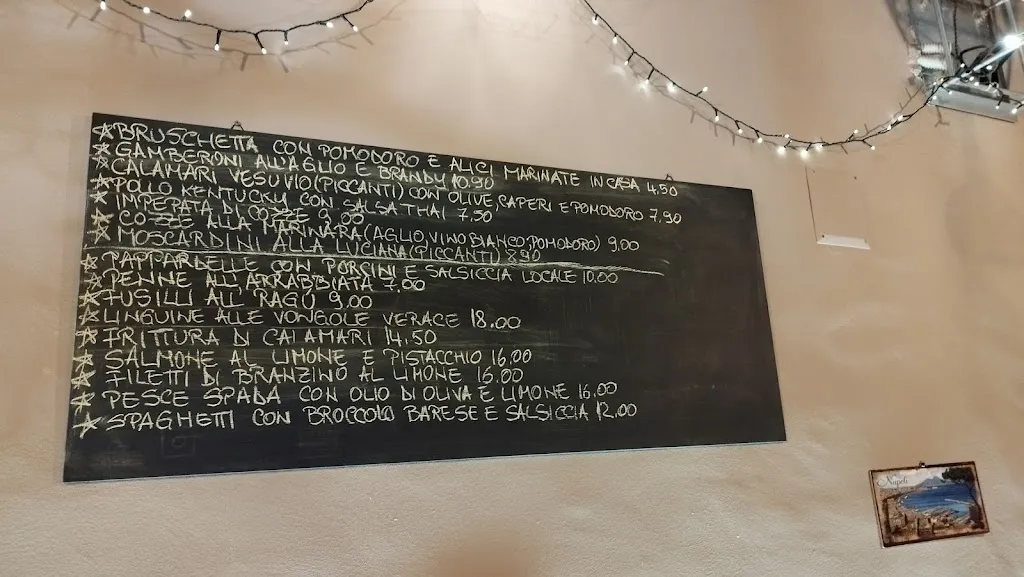 ☆BRUSCHETTA CON POMODORO E ALICI MARINATE IN CASA 4.50
☆GAMBERONI ALL'AGLIO E BRANDY 10.90
☆CALAMARI VESUVIO (PICCANTI) CON OLIVE, CAPERI E POMODORO 7.90
☆POLLO KENTUCKY CON SALSA THAI 7.50
☆IMPEPATA DI COZZE 9.00
☆COZZE ALLA MARINARA (AGLIO, VINO BIANCO, POMODORO) 9.00
☆MOSCARDINI ALLA LUCIANA (PICCANTI) 8.90
☆PAPPARDELLE CON PORCINI E SALSICCIA LOCALE 10.00
☆PENNE ALL'ARRABBIATA 7.00
☆FUSILLI ALL'RAGÚ 9.00
☆LINGUINE ALLE VONGOLE VERACE 18.00
☆FRITTURA DI CALAMARI 14.50
☆SALMONE AL LIMONE E PISTACCHIO 16.00
☆FILETTI DI BRANZINO AL LIMONE 16.00
☆PESCE SPADA CON OLIO DI OLIVA E LIMONE 16.00
☆SPAGHETTI CON BROCCOLO BARESE E SALSICCIA 12.00
Napoli